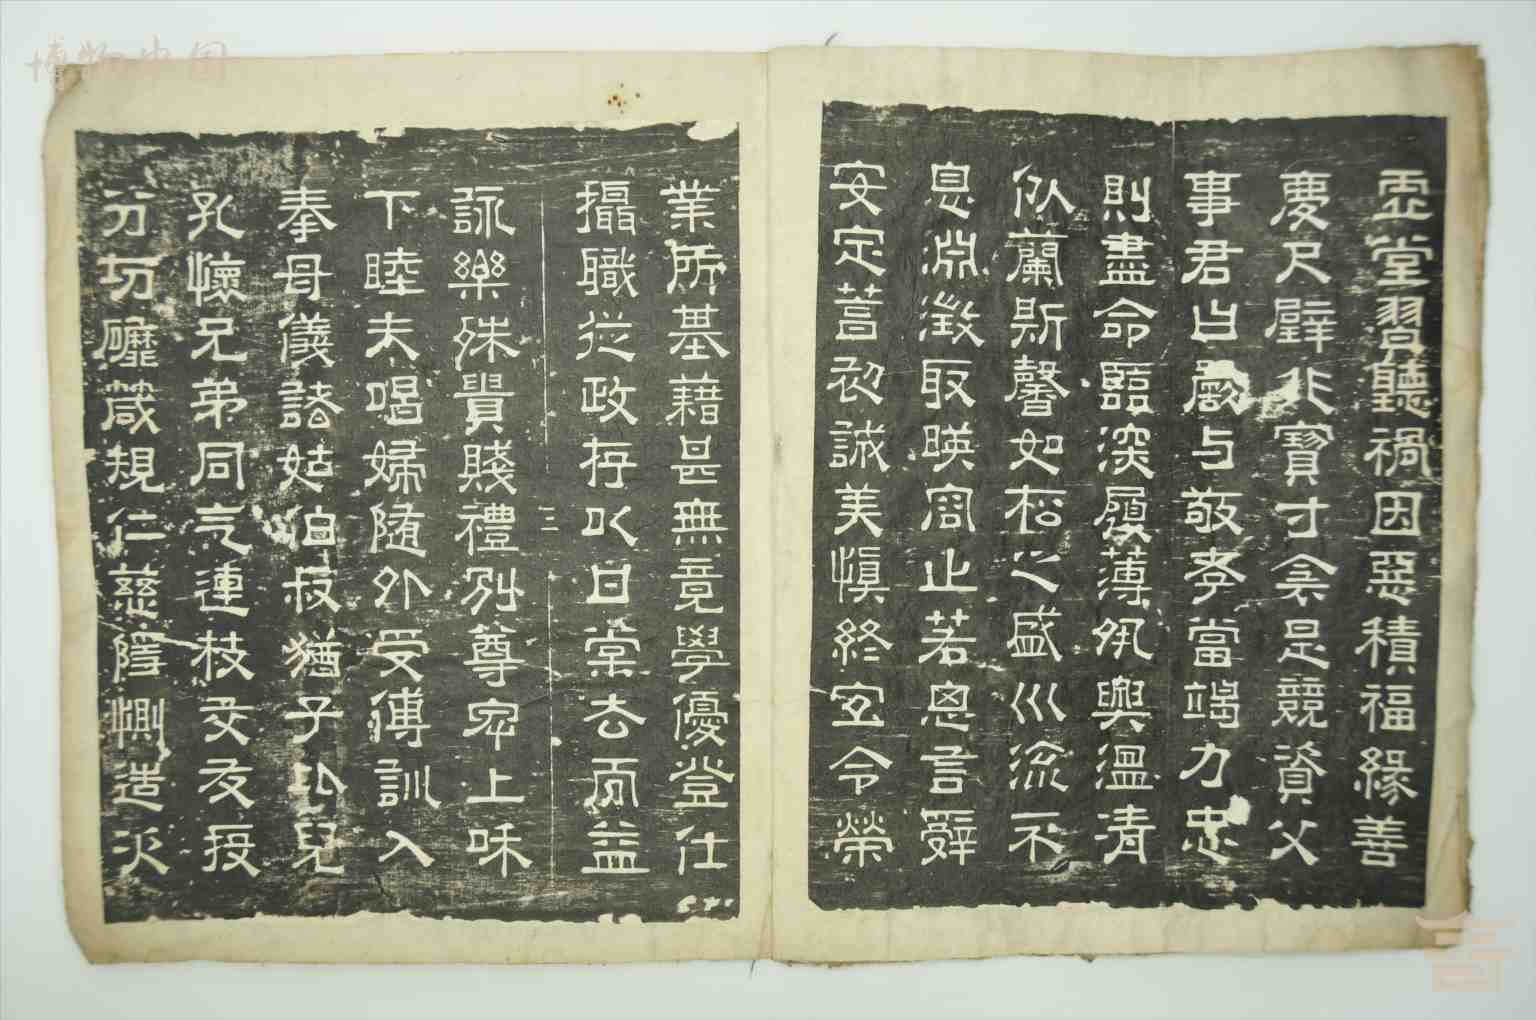 虛堂習聽禍因惡積福緣善
慶尺璧非寶寸陰是競資父
事君曰嚴与敬孝當竭力忠
則盡命臨深履薄夙興溫清
似蘭斯馨如松之盛川流不
息淵澂取暎容止若思言辭
安定篤初誠美慎終宜令榮
業所基藉甚無竟學優登仕
攝職從政存以甘棠去而益
三
詠樂殊貴賤禮別尊卑上和
下睦夫唱婦隨外受傅訓入
奉母儀諸姑伯叔猶子比兒
孔懷兄弟同气連枝交友投
分切磨箴規仁慈隱惻造次
博物中国